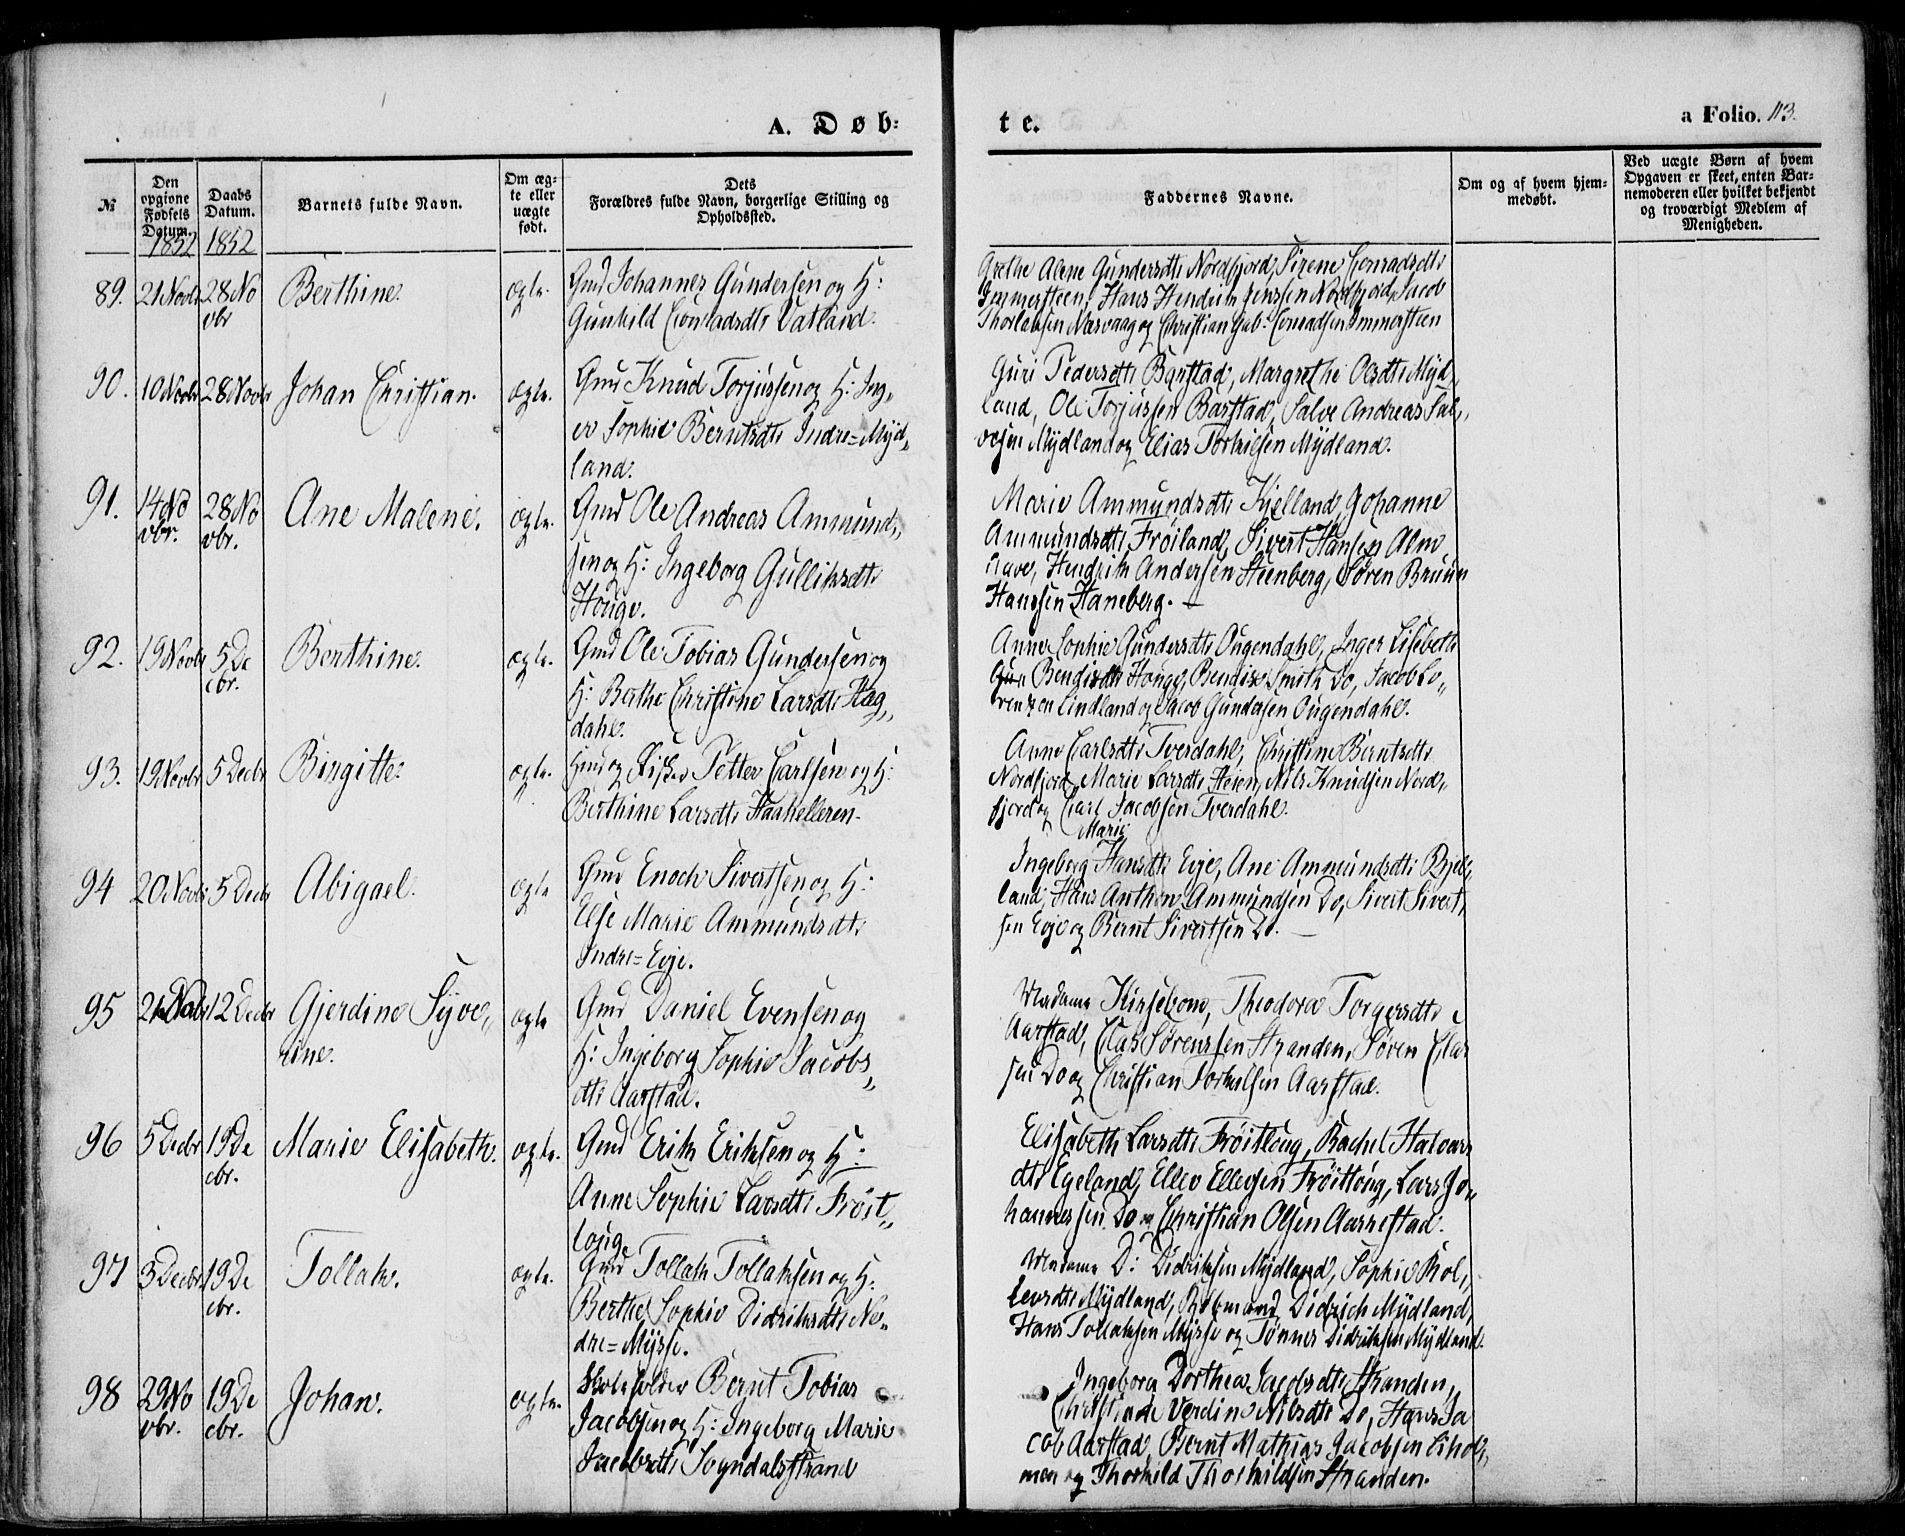 A. Døb=
te.
a Folio. 113.
№
Den opgivne Fødsels Datum.
1852
Daabs Datum.
1852
Barnets fulde Navn.
Om ægte eller uægte født.
Dets Forældres fulde Navn, borgerlige Stilling og Opholdsted.
Faddernes Navne.
Om og af hvem hjemmedøbt.
Ved uægte Børn af hvem Opgaven er skeet, enten Barnemoderen eller hvilket bekjendt og troværdigt Medlem af Menigheden.
89. 21 Novbr 28 No
vbr
Berthine.
ægte.
Gmd Johannes Gundersen og H:
Gunhild Conradsdtr Vatland.
Grethe Alene Gundersdtr Nordfjord, Sirene Conradsdtr
Immersteen, Hans Hendrik Jenssen Nordfjord, Jacob
Thorlaksen Næsvaag og Christian Gab: Conradsen Immersteen
90. 10 Novbr 28 Novbr
Johan Christian.
ægte.
Gmd Knud Torjussen og H: Ing„
er Sophie Berntsdtr Indre=Myd„
land.
Guri Pedersdtr Barstad, Margrethe Olsdtr Myd„
land, Ole Torjussen Barstad, Salve Andreas Sal„
vesen Mydland og Elias Torkilsen Mydland.
91. 14 No
vbr. 28 No
vbr.
Ane Malene.
ægte.
Gmd Ole Andreas Ammund„
sen og H: Ingeborg Gulliksdtr
Houge.
Marie Ammundsdtr Kjelland, Johanne
Ammundsdtr Frøiland, Sivert Hansen Alm
Hendrik Andersen Steenberg, Søren Bruun
Hanssen Haneberg. —
92. 19 Novbr 5 De
cbr.
Berthine.
ægte.
Gmd Ole Tobias Gundersen og
H: Berthe Christine Larsdtr Hæg„
dahl.
Anne Sophie Gundersdtr Ougendahl, Inger Lisebeth
Bendixdtr Houge, Bendix Smith Do, Jacob Lo„
rentzen Lindland og Jacob Gundersen Ougendahl.
93. 19 Novbr 5 Decbr
Birgitte.
ægte.
Huusmd og Fisker Petter Carlsen og H:
Berthine Larsdtr Haahelleren.
Anne Carlsdtr Tverdahl, Christine Berntsdtr
Nordfjord, Marie Larsdtr Heien, Nils Knudsen Nord„
fjord og Carl Jacobsen Tverdahl.
94 20 Novbr 5 Decbr
Abigael.
ægte
Gmd Enoch Sivertsen og H:
Else Marie Ammundsdtr
Indre=Eeje.
Marie
Ingeborg Hansdtr Eeje, Ane Ammundsdtr Kjel„
land, Hans Anthon Ammundsen Do, Sivert Sivert„
sen Eeje og Bernt Sivertsen Do. —
95 21 Novbr 12 Decbr
Gjerdine Syve„
rine.
ægte
Gmd Daniel Evensen og
H: Ingeborg Sophie Jacobs„
dtr Aarstad.
Madame Kirsebom, Theodora Torgersdtr
Aarstad, Clas Sørenssen Stranden, Søren Clas
sen Do og Christian Torkilsen Aarstad.
96 5 Decbr 19 De
cbr.
Marie Elisabeth.
ægte.
Gmd Erik Eriksen og H:
Anne Sophie Larsdtr Frøit„
loug.
Elisabeth Larsdtr Frøitloug, Rachel Halvars
dtr Egeland, Ellev Ellevsen Frøitloug, Lars Jo„
hannessen Do og Christian Olsen Aarrestad.
97 3 Decbr 19 De
cbr.
Tollak.
ægte.
Gmd Tollak Tollaksen og H:
Berthe Sophie Didriksdtr Ne„
dre=Mysse.
Madame D: Didriksen Mydland, Sophie Rol„
levsdtr Mydland, Didrich Mydland,
Hans Tollaksen Mysse og Tønnes Didriksen Mydland.
98 29 No
vbr. 19 De
cbr.
Johan.
ægte.
Skoleholder Bernt Tobias
Jacobsen og H: Ingeborg Marie
Jacobsdtr Sogndalsstrand
Ingeborg Dorthea Jacobsdtr Stranden,
Christiane Verdine Nilsdtr Do, Hans Ja
cob Aarstad, Bernt Mathias Jacobsen Lihol„
men og Thorkild Thorkildsen Stranden.